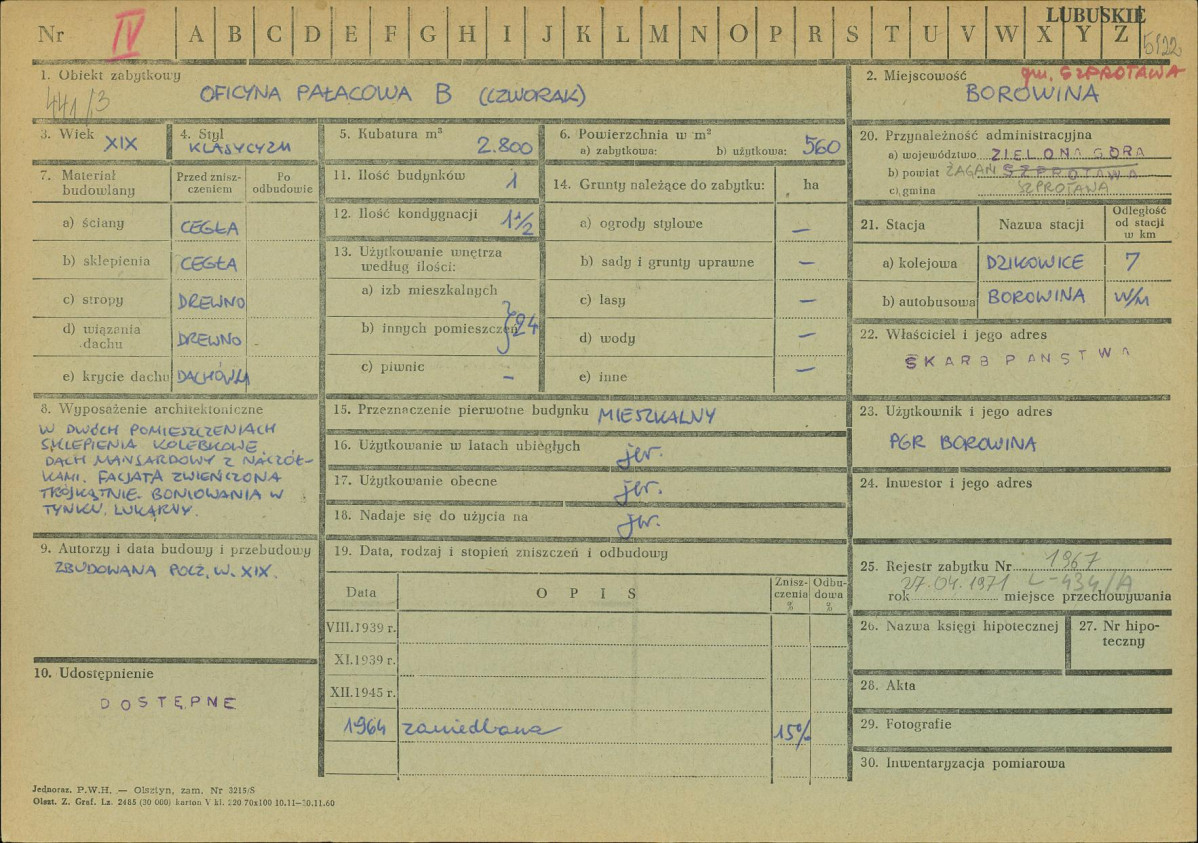 LUBUSKIE
Nr IV A B C D E F G H I J K L M N O P R S T U V W X Y Z
5122
1. Obiekt zabytkowy
441/3
OFICYNA PAŁACOWA B (CZWORAK)
2. Miejscowość gm. SZPROTAWA
BOROWINA
3. Wiek XIX
4. Styl KLASYCYZM
5. Kubatura m³ 2.800
6. Powierzchnia w m²
a) zabytkowa: b) użytkowa: 560
20. Przynależność administracyjna
a) województwo ZIELONA GÓRA
b) powiat ŻAGAŃ SZPROTAWA
c) gmina SZPROTAWA
7. Materiał budowlany
Przed zniszczeniem
Po odbudowie
a) ściany CEGŁA
b) sklepienia CEGŁA
c) stropy DREWNO
d) wiązania dachu DREWNO
e) krycie dachu DACHÓWKA
11. Ilość budynków 1
12. Ilość kondygnacji 1 1/2
13. Użytkowanie wnętrza
według ilości:
a) izb mieszkalnych
b) innych pomieszczeń } 24
c) piwnic –
14. Grunty należące do zabytku: ha
a) ogrody stylowe –
b) sady i grunty uprawne –
c) lasy –
d) wody –
e) inne –
21. Stacja
Nazwa stacji
Odległość od stacji w km
a) kolejowa DZIKOWICE 7
b) autobusowa BOROWINA w/m
22. Właściciel i jego adres
SKARB PAŃSTWA
8. Wyposażenie architektoniczne
W DWÓCH POMIESZCZENIACH
SKLEPIENIA KOLEBKOWE.
DACH MANSARDOWY Z NACZÓŁ-
KAMI. FACJATA ZWIEŃCZONA
TRÓJKĄTNIE. BONIOWANIA W
TYNKU. LUKARNY.
15. Przeznaczenie pierwotne budynku MIESZKALNY
16. Użytkowanie w latach ubiegłych jw.
17. Użytkowanie obecne jw.
18. Nadaje się do użycia na jw.
23. Użytkownik i jego adres
PGR BOROWINA
24. Inwestor i jego adres
9. Autorzy i data budowy i przebudowy
ZBUDOWANA POCZ. W. XIX.
10. Udostępnienie
DOSTĘPNE
19. Data, rodzaj i stopień zniszczeń i odbudowy
Data
OPIS
Zniszczenia %
Odbudowa %
VIII.1939 r.
XI.1939 r.
XII.1945 r.
1964 zaniedbana 15%
25. Rejestr zabytku Nr 1967
27.04.1971 L-434/A
rok miejsce przechowywania
26. Nazwa księgi hipotecznej
27. Nr hipoteczny
28. Akta
29. Fotografie
30. Inwentaryzacja pomiarowa
Jednoraz. P.W.H. — Olsztyn, zam. Nr 3215/S
Olszt. Z. Graf. Lz. 2485 (30 000) karton V kl. 220 70x100 10.11—30.11.60